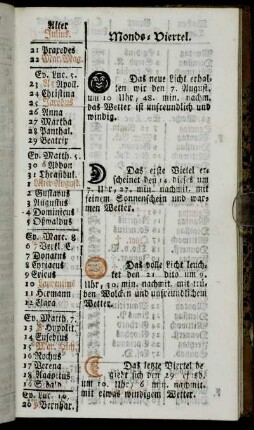 Alter
Julius.
21 Praxedes
22 Mar. Mag.
Ev. Luc. 5.
23 Apoll.
24 Christina
25 Jacobus
26 Anna
27 Martha
28 Panthal.
29 Beatrix
Ev. Matth. 5.
30 Abdon
31 Thrasibul.
1
2 Gustavus
3 Augustus
4 Dominicus
5 Oswaldus
Ev. Marc. 8.
6
7 Donatus
8 Cyriacus
9 Ericus
10 Laurentius
11 Hermann
12 Clara
Ev. Matth. 7.
13 Hypolit.
14 Eusebius
15
16 Rochus
17 Verena
18 Agapitus
19 Sebald
Ev. Luc. 16.
20 Bernhar.
Monds-Viertel.
Das neue Licht erhal-
ten wir den 7. August.
um 10 Uhr, 48. min. nachm.
das Wetter ist unfreundlich und
windig.
Das erste Viertel er-
scheinet den 14. dieses um
7. Uhr, 27. min. nachmit. mit
feinem Sonnenschein und war-
men Wetter.
Das volle Licht leuch-
tet den 21. dito um
Uhr, 30. min. nachmit. mit trü-
ben Wolcken und unfreundlichem
Wetter.
Das letzte Viertel be-
giebt sich den 29.
um 10. Uhr, 6 min. nachmit.
mit etwas windigem Wetter.